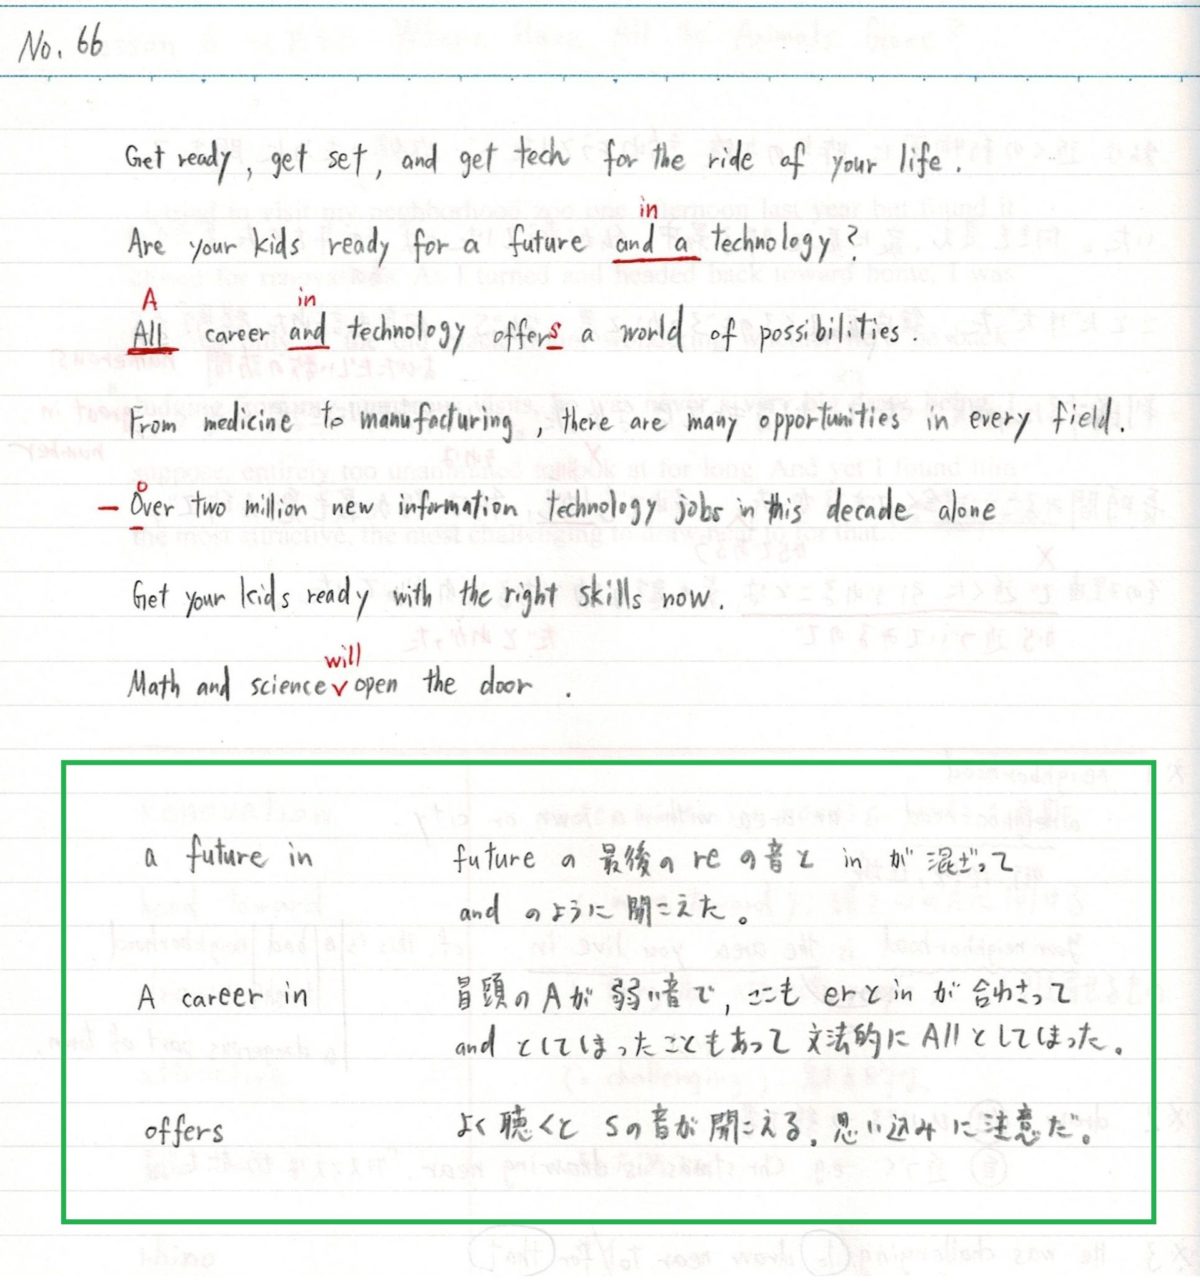 No. 66
Get ready, get set, and get tech for the ride of your life.
in
Are your kids ready for a future and a technology?
A in
All career and technology offers a world of possibilities.
From medicine to manufacturing, there are many opportunities in every field.
Over two million new information technology jobs in this decade alone
Get your kids ready with the right skills now.
will
Math and science open the door.
a future in future の 最後の re の音と in が 混ざって
and のように聞こえた。
A career in 冒頭の A が 弱い音で, ここも er と in が 合わさって
and としてしまったこともあって 文法的に All としてしまった.
offers よく聴くと sの音が聞こえる. 思い込みに注意だ。